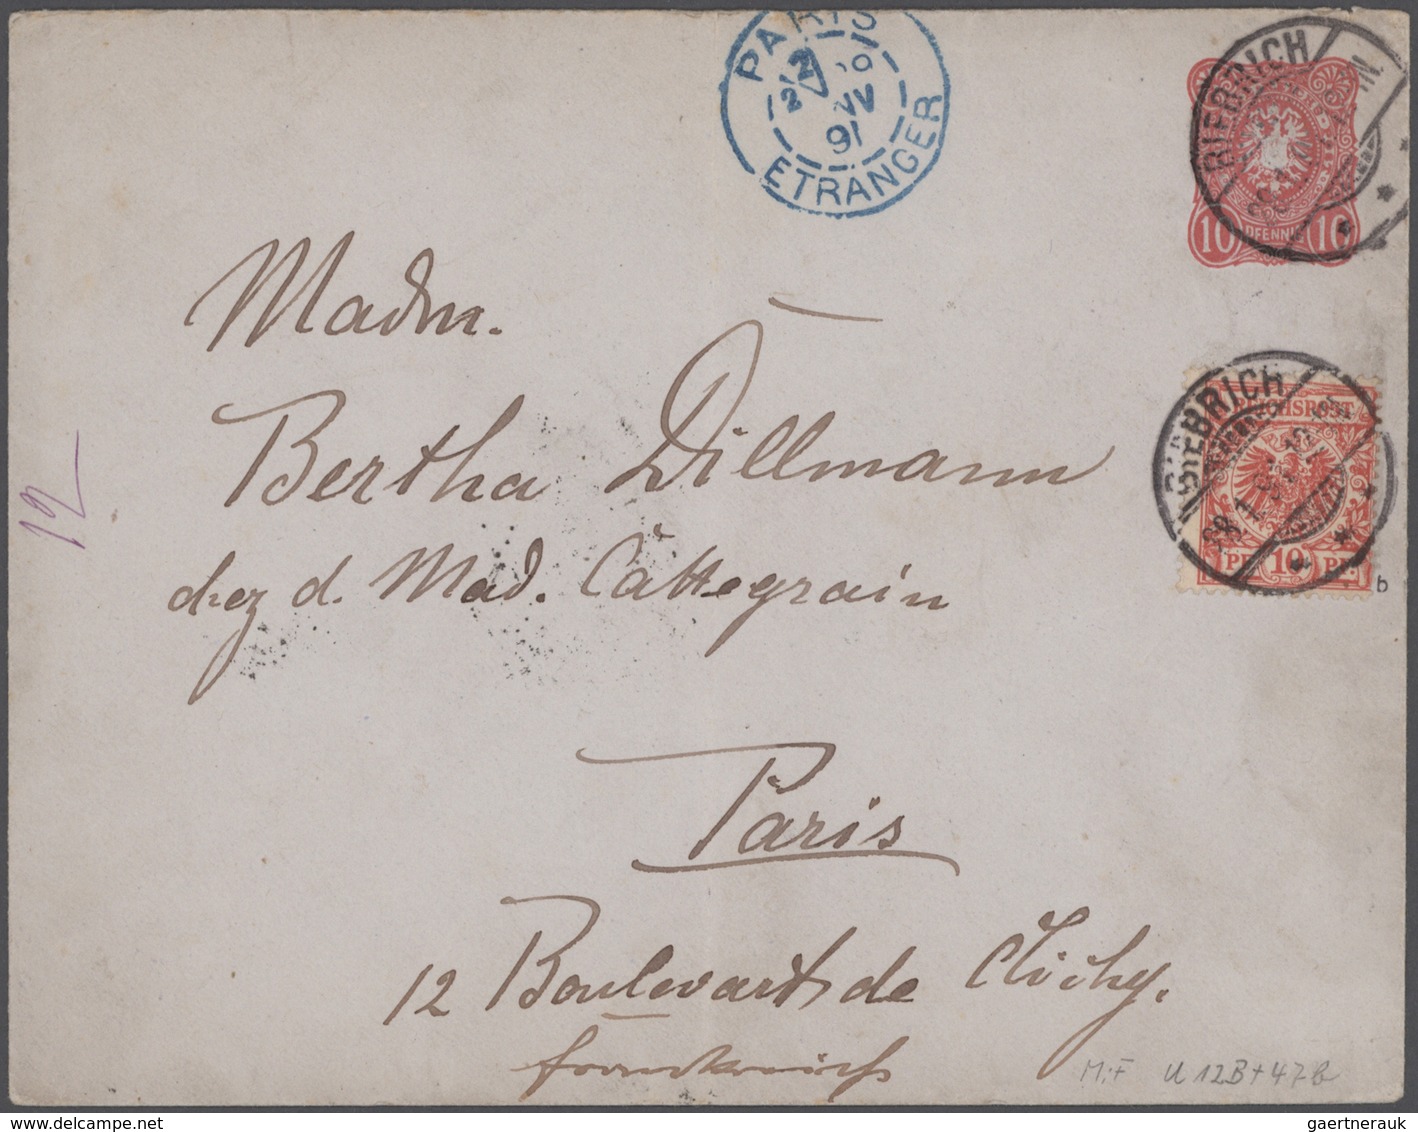 PARIS
ETRANGER
91
BIEBRICH
10 PFENNIG 10
Madm.
Bertha Dillmann
chez d. Mad. Cattegrain
12
BIEBRICH
REICHSPOST
PF. 10 PF.
b
Paris
12 Boulevart de Clichy.
Frankreich
MiF U 12B+47b
gaertnerauk